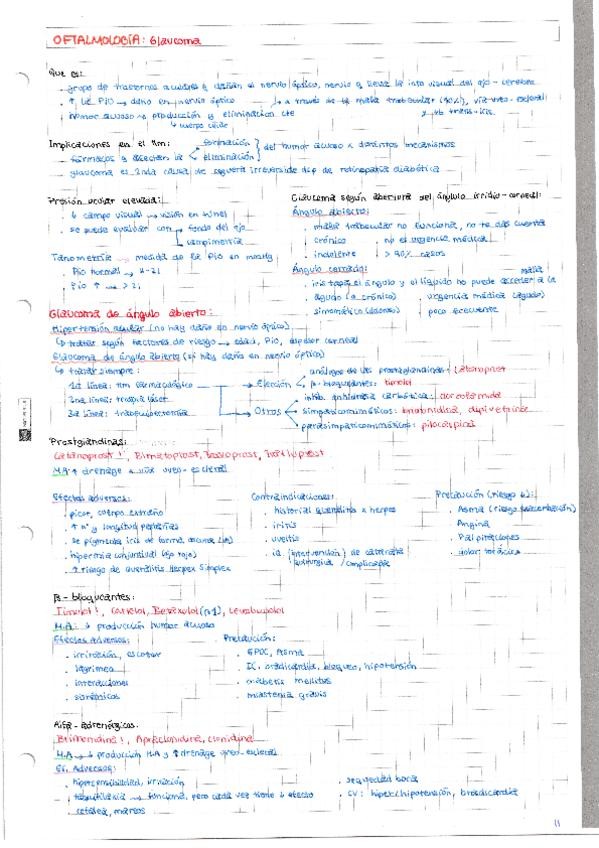 OFTALMOLOGÍA: Glaucoma
Que es:
grupo de trastornos oculares q dañan el nervio óptico, nervio q lleva la info visual del ojo - cerebro
. ↑ la PIO → daño en nervio óptico
. humor acuoso → producción y eliminación cte
↳ a través de la malla trabecular (90%), vía uveo-escleral
↳ cuerpo ciliar
Implicaciones en el
formación
fármacos q afectan la
eliminación
del humor acuoso x distintos mecanismos
glaucoma el 2nda causa de ceguera irreversible dsp de retinopatía diabética
Presión ocular elevada:
. ↓ campo visual → visión en túnel
. se puede evaluar con → fondo del ojo
→ campimetría
Tonometría → medida de la PIO en mmHg
. PIO normal →
. PIO ↑ →
Glaucoma según abertura del ángulo irido-corneal:
Ángulo abierto:
. malla trabecular no funciona, no te das cuenta
. crónico . no el urgencia médica
. indolente . > 90% casos
Ángulo cerrado:
. iris tapa el ángulo y el líquido no puede acceder a la malla
. agudo (o crónico) . urgencia médica (agudo)
. sintomático (doloroso) . poco frecuente
Glaucoma de ángulo abierto:
Hipertensión ocular (no hay daño en nervio óptico)
↳ tratar según factores de riesgo → edad, PIO, espesor corneal
Glaucoma de ángulo abierto (sí hay daño en nervio óptico)
↳ tratar siempre:
1a línea: ttm farmacológico
2nda línea: terapia láser
3a línea: trabeculectomía
Elección
análogos de las prostaglandinas: Latanoprost
β-bloqueantes: timolol
Otros
inhib. anhidrasa carbónica: dorzolamida
simpaticomiméticos: brimonidina, dipivefrina
parasimpaticomiméticos: pilocarpina
Prostglandinas:
Latanoprost !, Bimatoprost, Travoprost, Tafluprost
M.A: ↑ drenage x vía uveo-escleral
Efectos adversos:
. picor, cuerpo extraño
. ↑ nº y longitud pestañas
. se pigmenta iris de forma oscura
. hipertmia conjuntival (ojo rojo)
. ↑ riesgo de queratitis Herpex Simplex
Contraindicaciones:
. historial queratitis x herpes
. iritis
. uveitis
. iq (intervención quirúrgica) de catarata complicada
Precaución
. Asma (riesgo exacerbación)
. Angina
. Palpitaciones
. dolor torácico
β - bloqueantes:
Timolol !, Carteolol, Betaxolol (β1), Levobunolol
M.A: ↓ producción humor acuoso
Efectos adversos:
. irritación, escozor
. lágrimeo
. interacciones
. sistémicos
Precaución:
. EPOC, Asma
. IC, bradicardia, bloqueo, hipotensión
. diabetis mellitus
. miastenia gravis
Alfa - adrenérgicos:
Brimonidina !, Apraclonidina, clonidina
M.A → ↓ producción H.A y ↑ drenage uveo-escleral
Ef. Adversos:
. hipersensibilidad, irritación
. taquifilaxia → funciona, pero cada vez tiene ↓ efecto
. cefalea, mareos
. sequedad boca
. CV: hiper/hipotensión, bradicardia
11